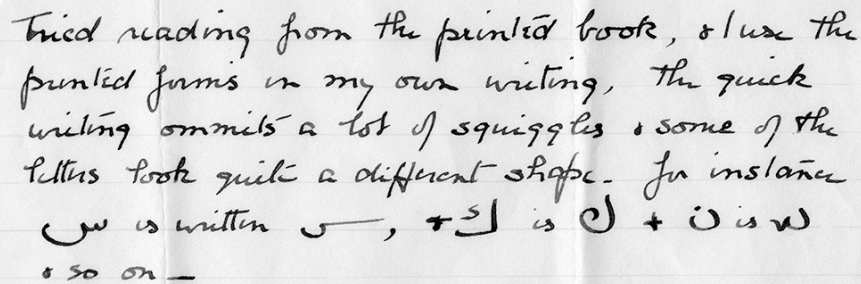 Tried reading from the printed book, & I use the
printed forms in my own writing, the quick
writing ommits a lot of squiggles & some of the
letters look quite a different shape. For instance
س is written, + ك is + ن is
& so on —